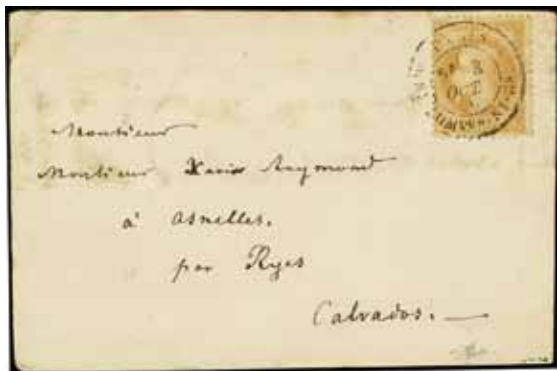 Monsieur
Monsieur Xavier Raymond
à Asnelles.
par Ryes
Calvados.
OCT